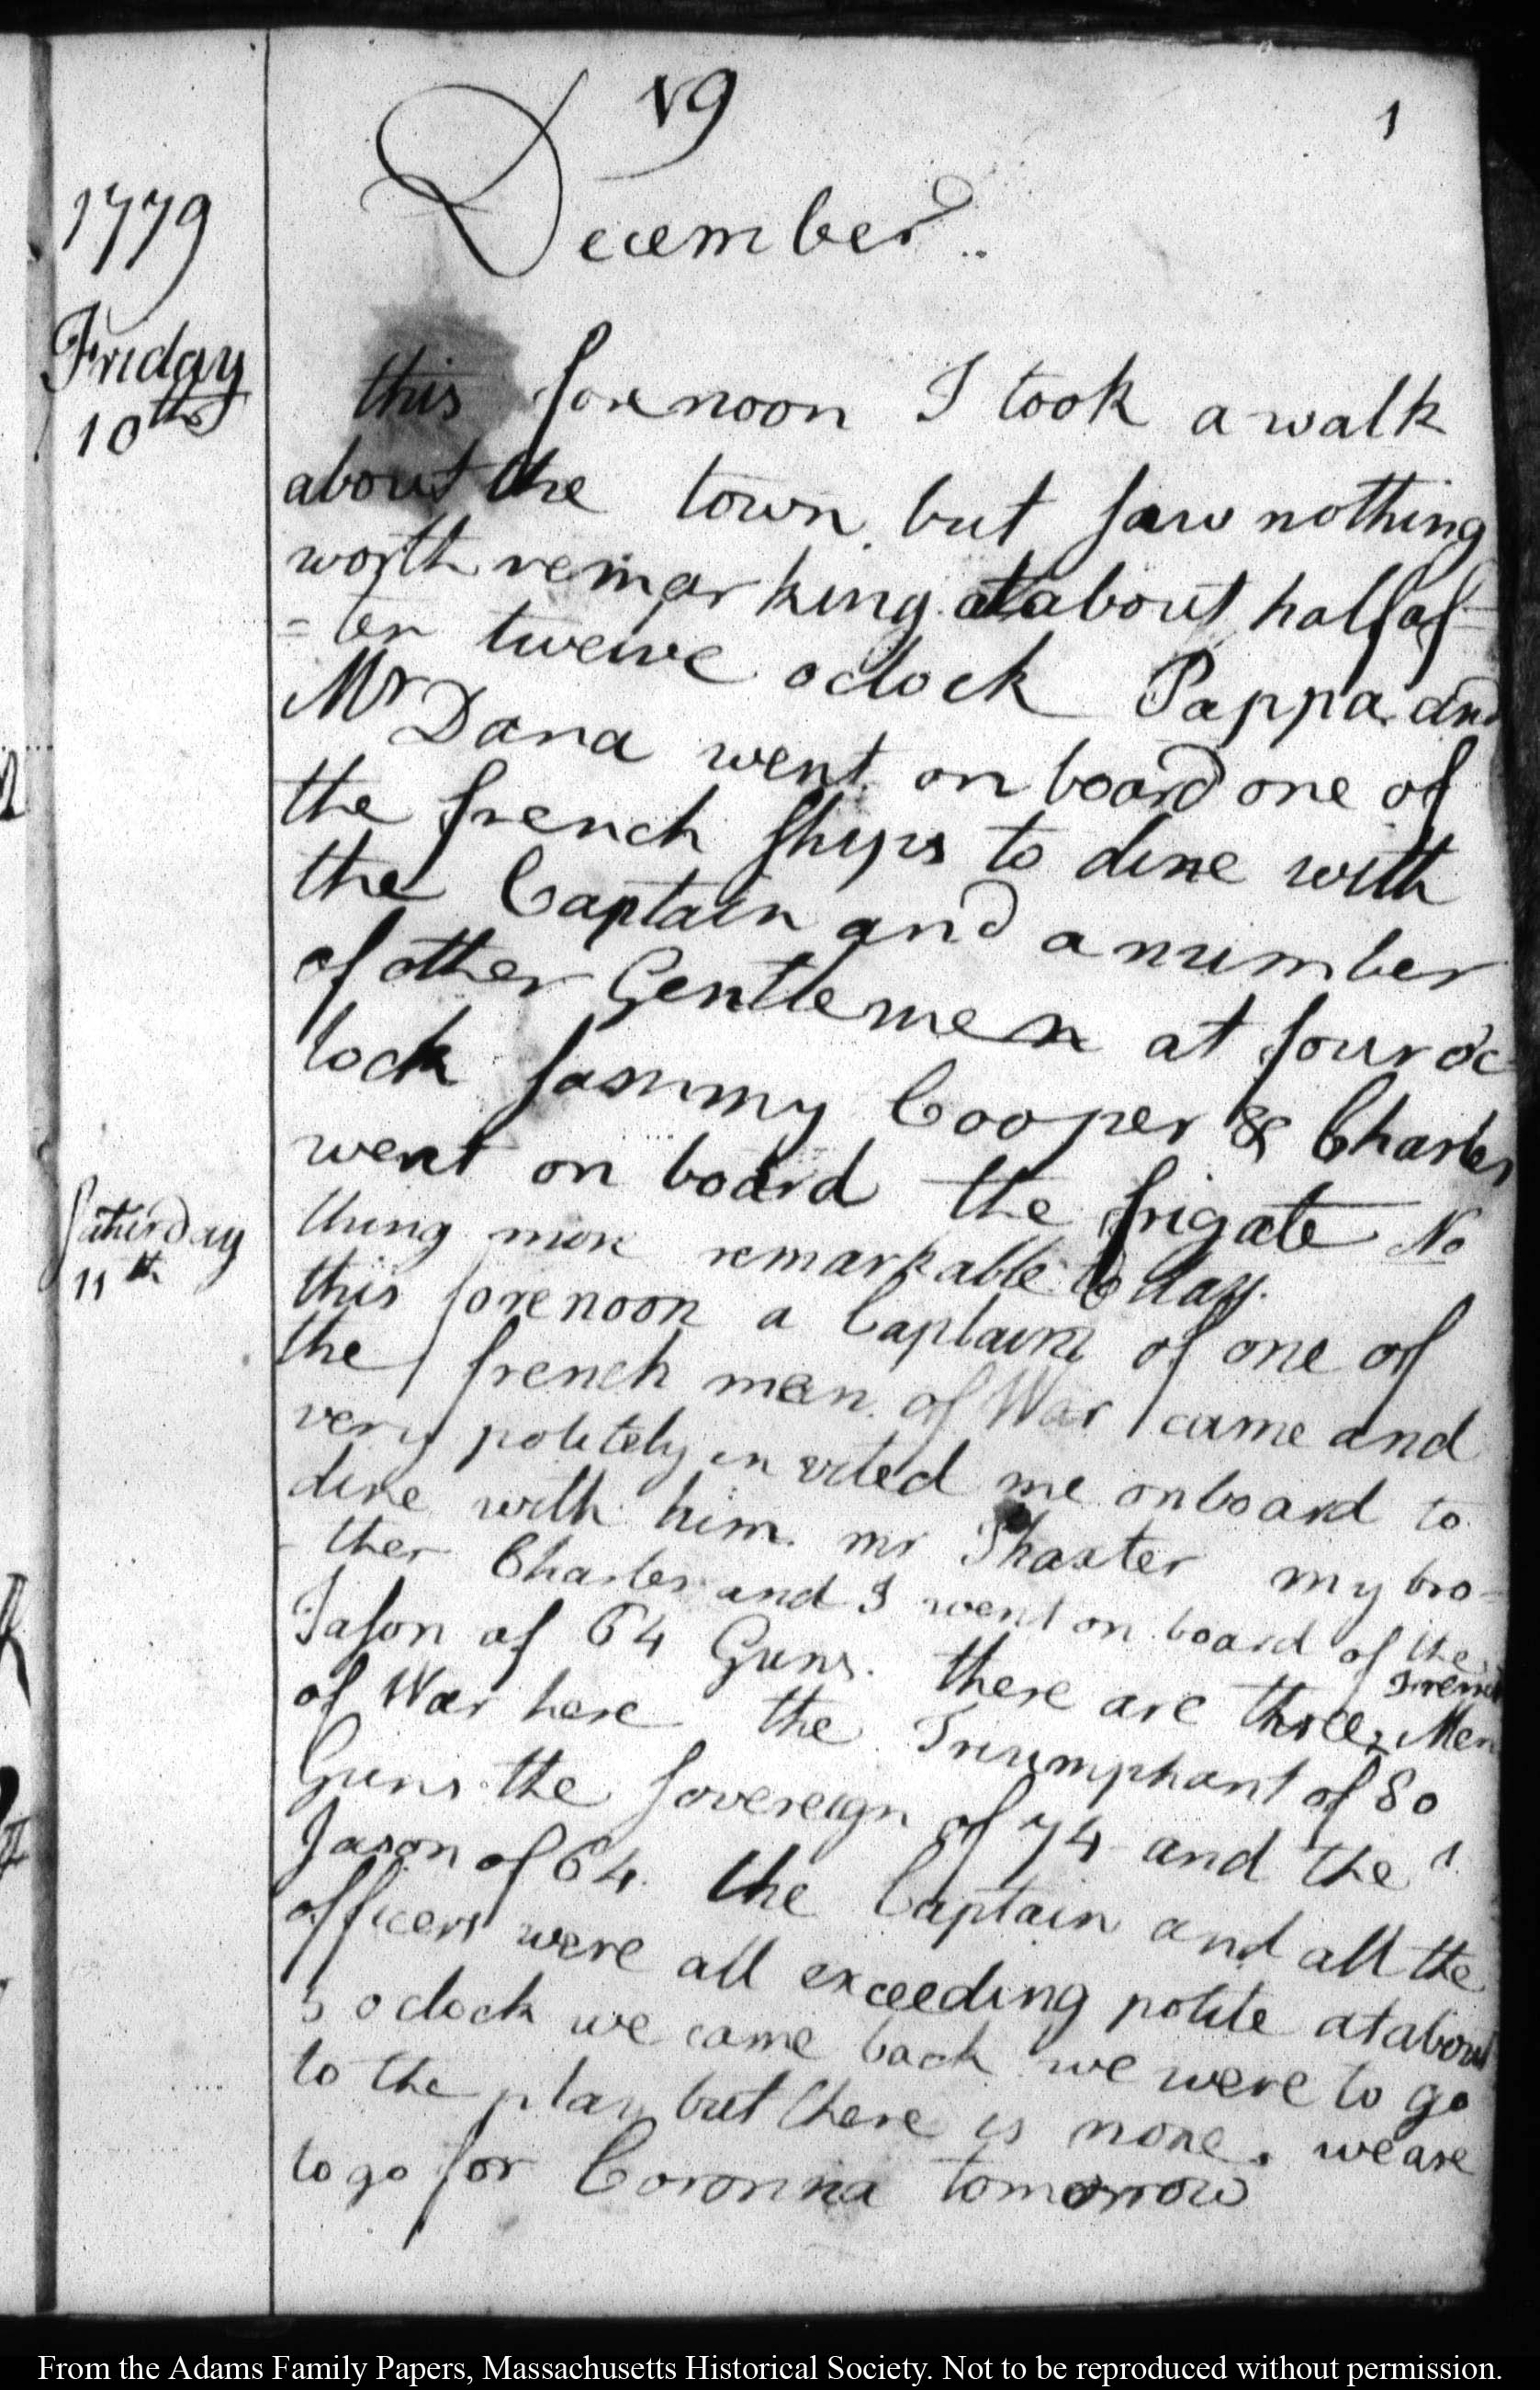 19
1
1779
December..
Friday
10th
this forenoon I took a walk
about the town but saw nothing
worth remarking at about half af-
-ter twelve oclock Pappa and
Mr Dana went on board one of
the french ships to dine with
the Captain and a number
of other Gentlemen at four oc
lock sammy Cooper & Charles
went on board the frigate No
thing more remarkable to day.
Saturday
11th
this forenoon a Captain of one of
the french men of War came and
very politely invited me on board to
dine with him. mr Thaxter my bro-
-ther Charles and I went on board of the
Jason of 64 Guns. there are three french Men
of War here the Triumphant of 80
Guns the sovereign of 74 and the
Jason of 64. the Captain and all the
officers were all exceeding polite at about
5 oclock we came back we were to go
to the play but there is none. we are
to go for Coronna tomorrow
From the Adams Family Papers, Massachusetts Historical Society. Not to be reproduced without permission.